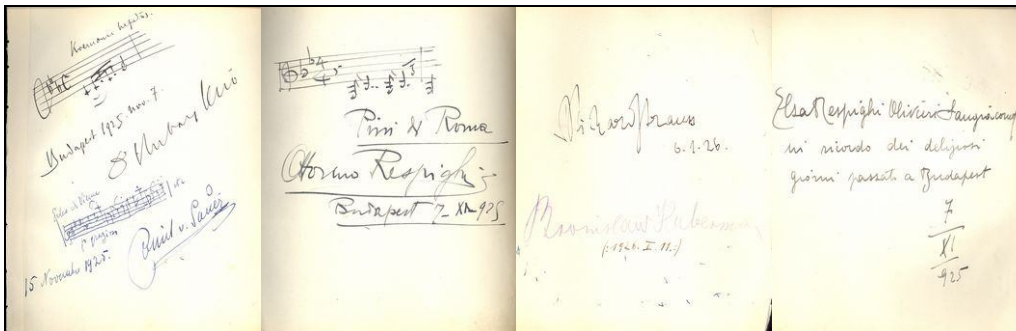 Kremoni hegedűs.
Budapest 1925. nov. 7.
Hubay Jenő
15 Novembre 1925.
Emil v. Sauer
Pini di Roma
Ottorino Respighi
Budapest 7-XI-925
Richard Strauss
6.1.26.
Bronislaw Huberman
(:1926. I. 11.:)
Elsa Respighi Olivieri Sangiacomo
in ricordo dei deliziosi
giorni passati a Budapest
7
XI
925